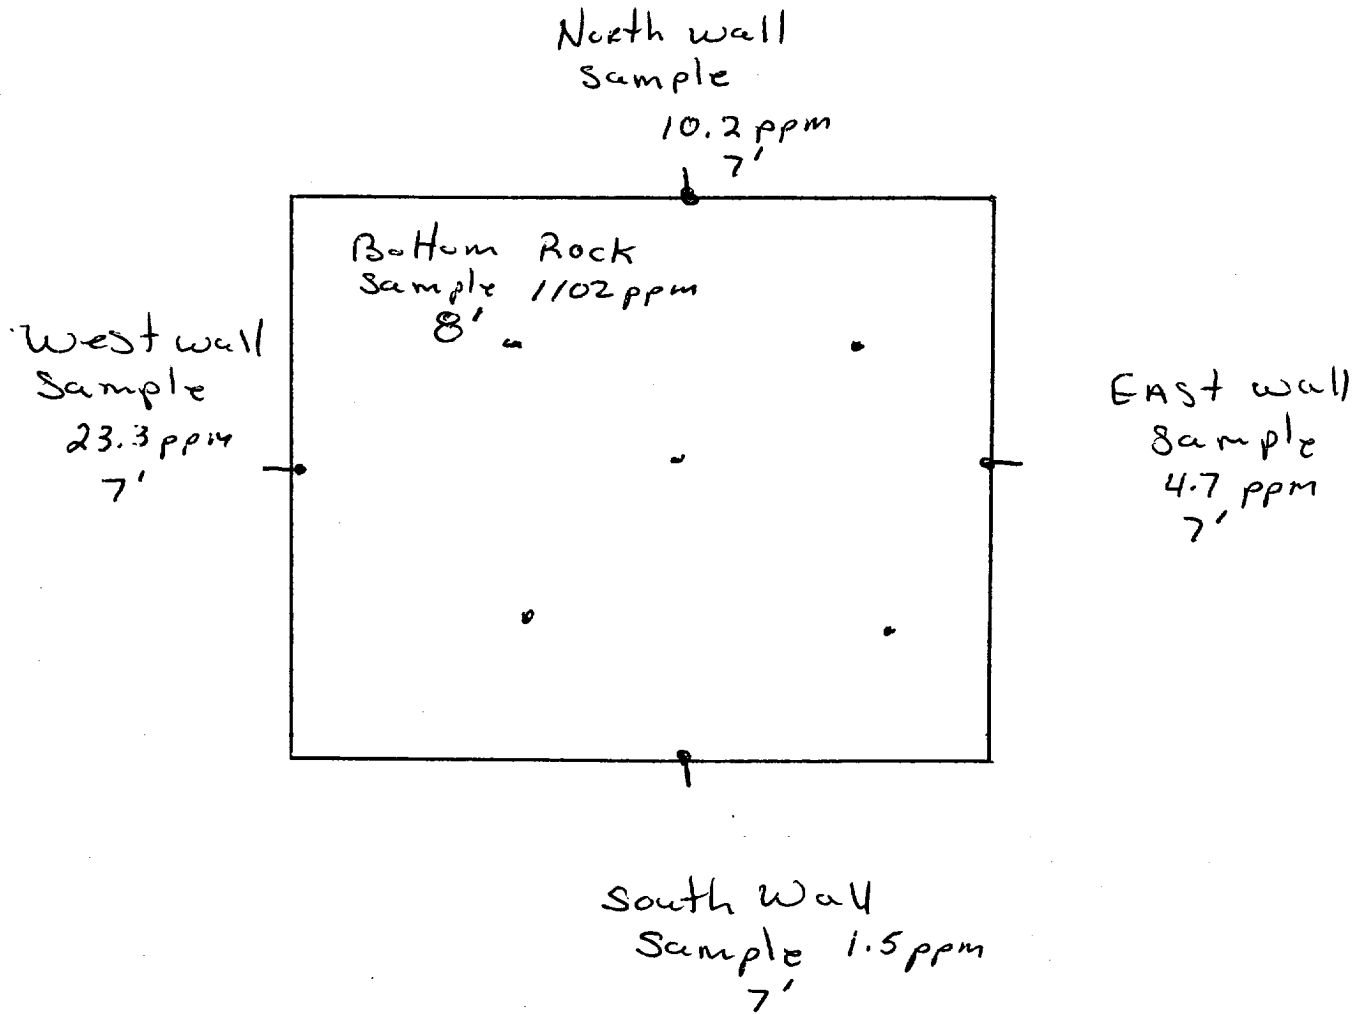 North wall
Sample
10.2 ppm
7'
Bottom Rock
Sample 1102 ppm
8'
West wall
Sample
23.3 ppm
7'
EAST wall
Sample
4.7 ppm
7'
South Wall
Sample 1.5 ppm
7'